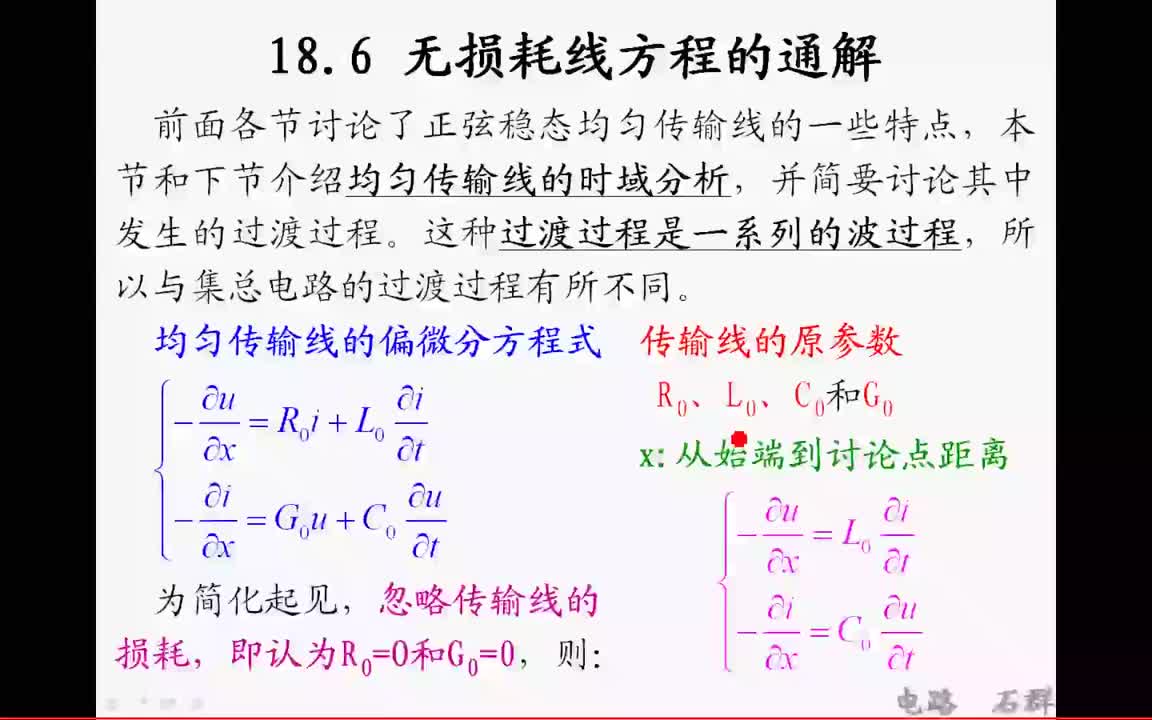 18.6 无损耗线方程的通解
前面各节讨论了正弦稳态均匀传输线的一些特点，本
节和下节介绍均匀传输线的时域分析，并简要讨论其中
发生的过渡过程。这种过渡过程是一系列的波过程，所
以与集总电路的过渡过程有所不同。
均匀传输线的偏微分方程式
-∂u/∂x = R₀i + L₀ ∂i/∂t
-∂i/∂x = G₀u + C₀ ∂u/∂t
传输线的原参数
R₀、L₀、C₀和G₀
x: 从始端到讨论点距离
为简化起见，忽略传输线的
损耗，即认为R₀=0和G₀=0，则:
-∂u/∂x = L₀ ∂i/∂t
-∂i/∂x = C₀ ∂u/∂t
电路 石群